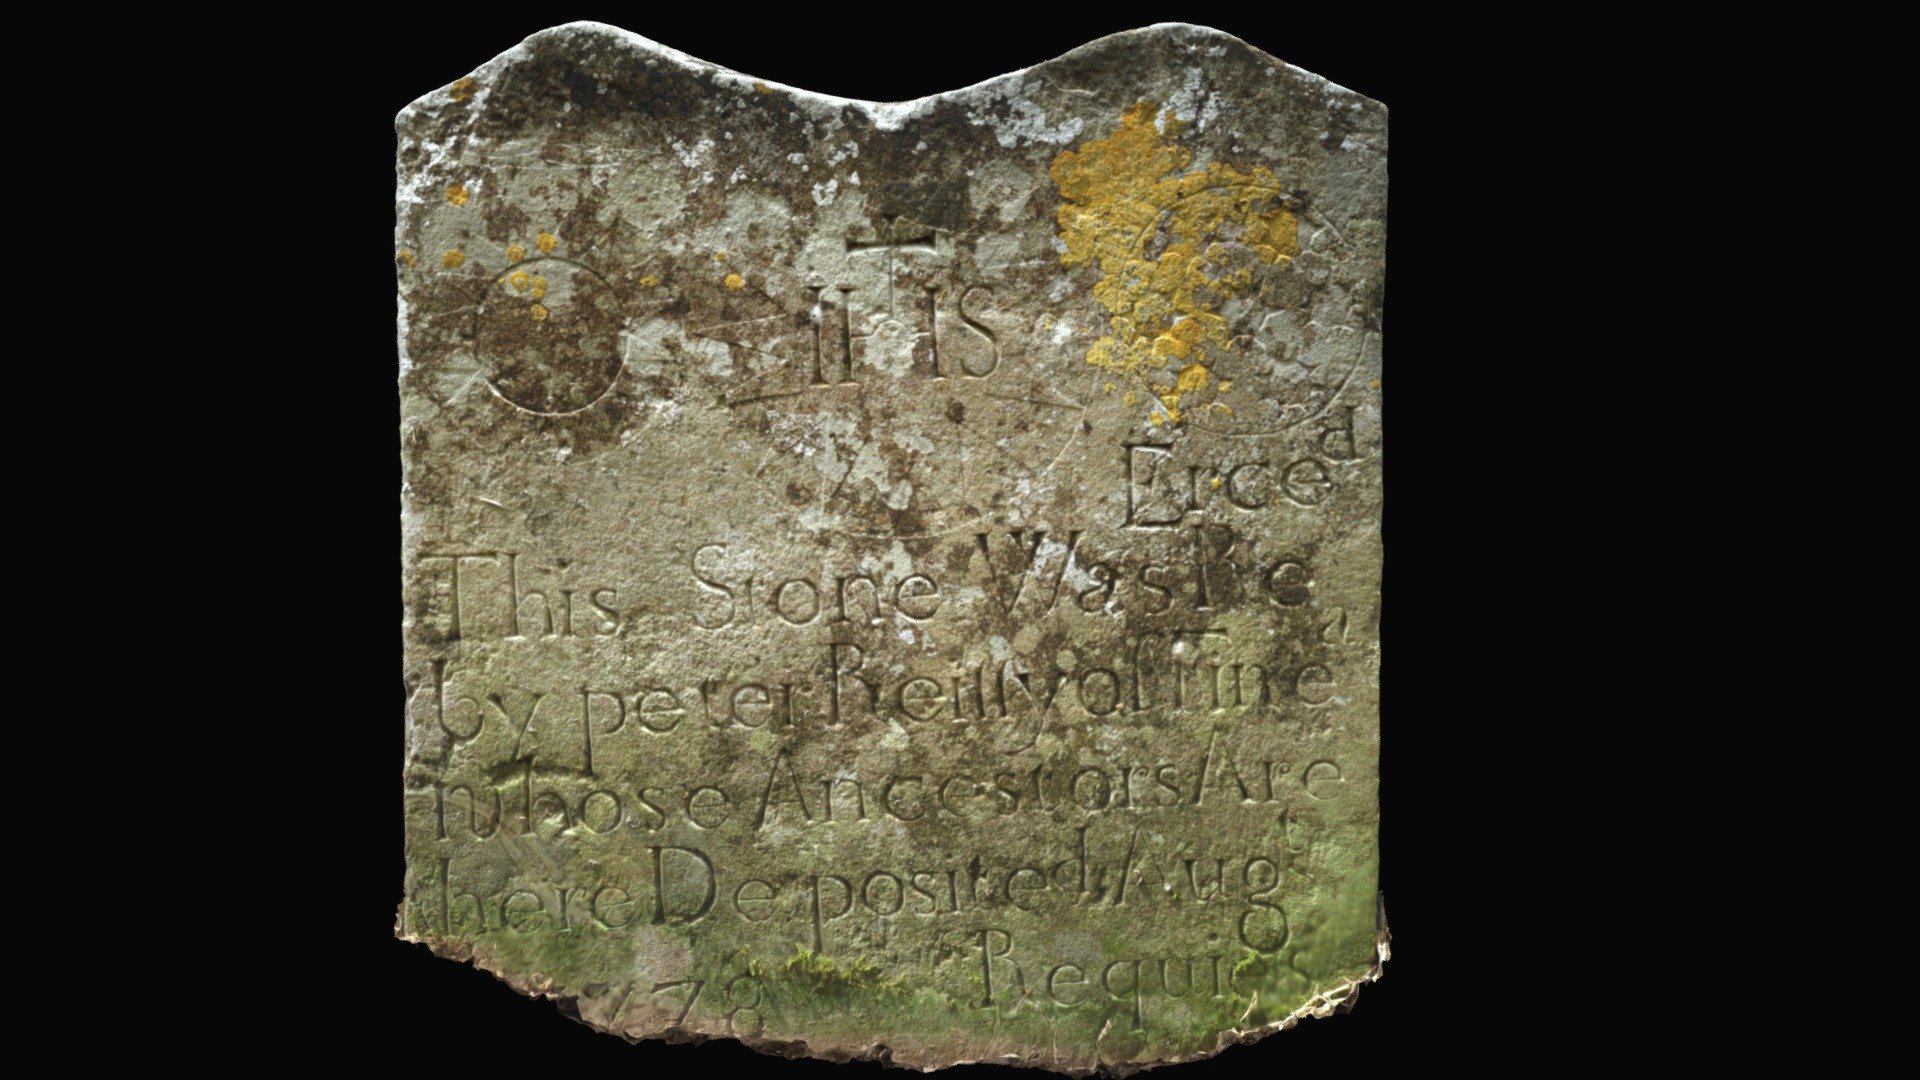 IHS
Erced
This Stone Was Re
by peter Reilly of Finea
whose Ancestors Are
here Deposited Augt
178 Requies